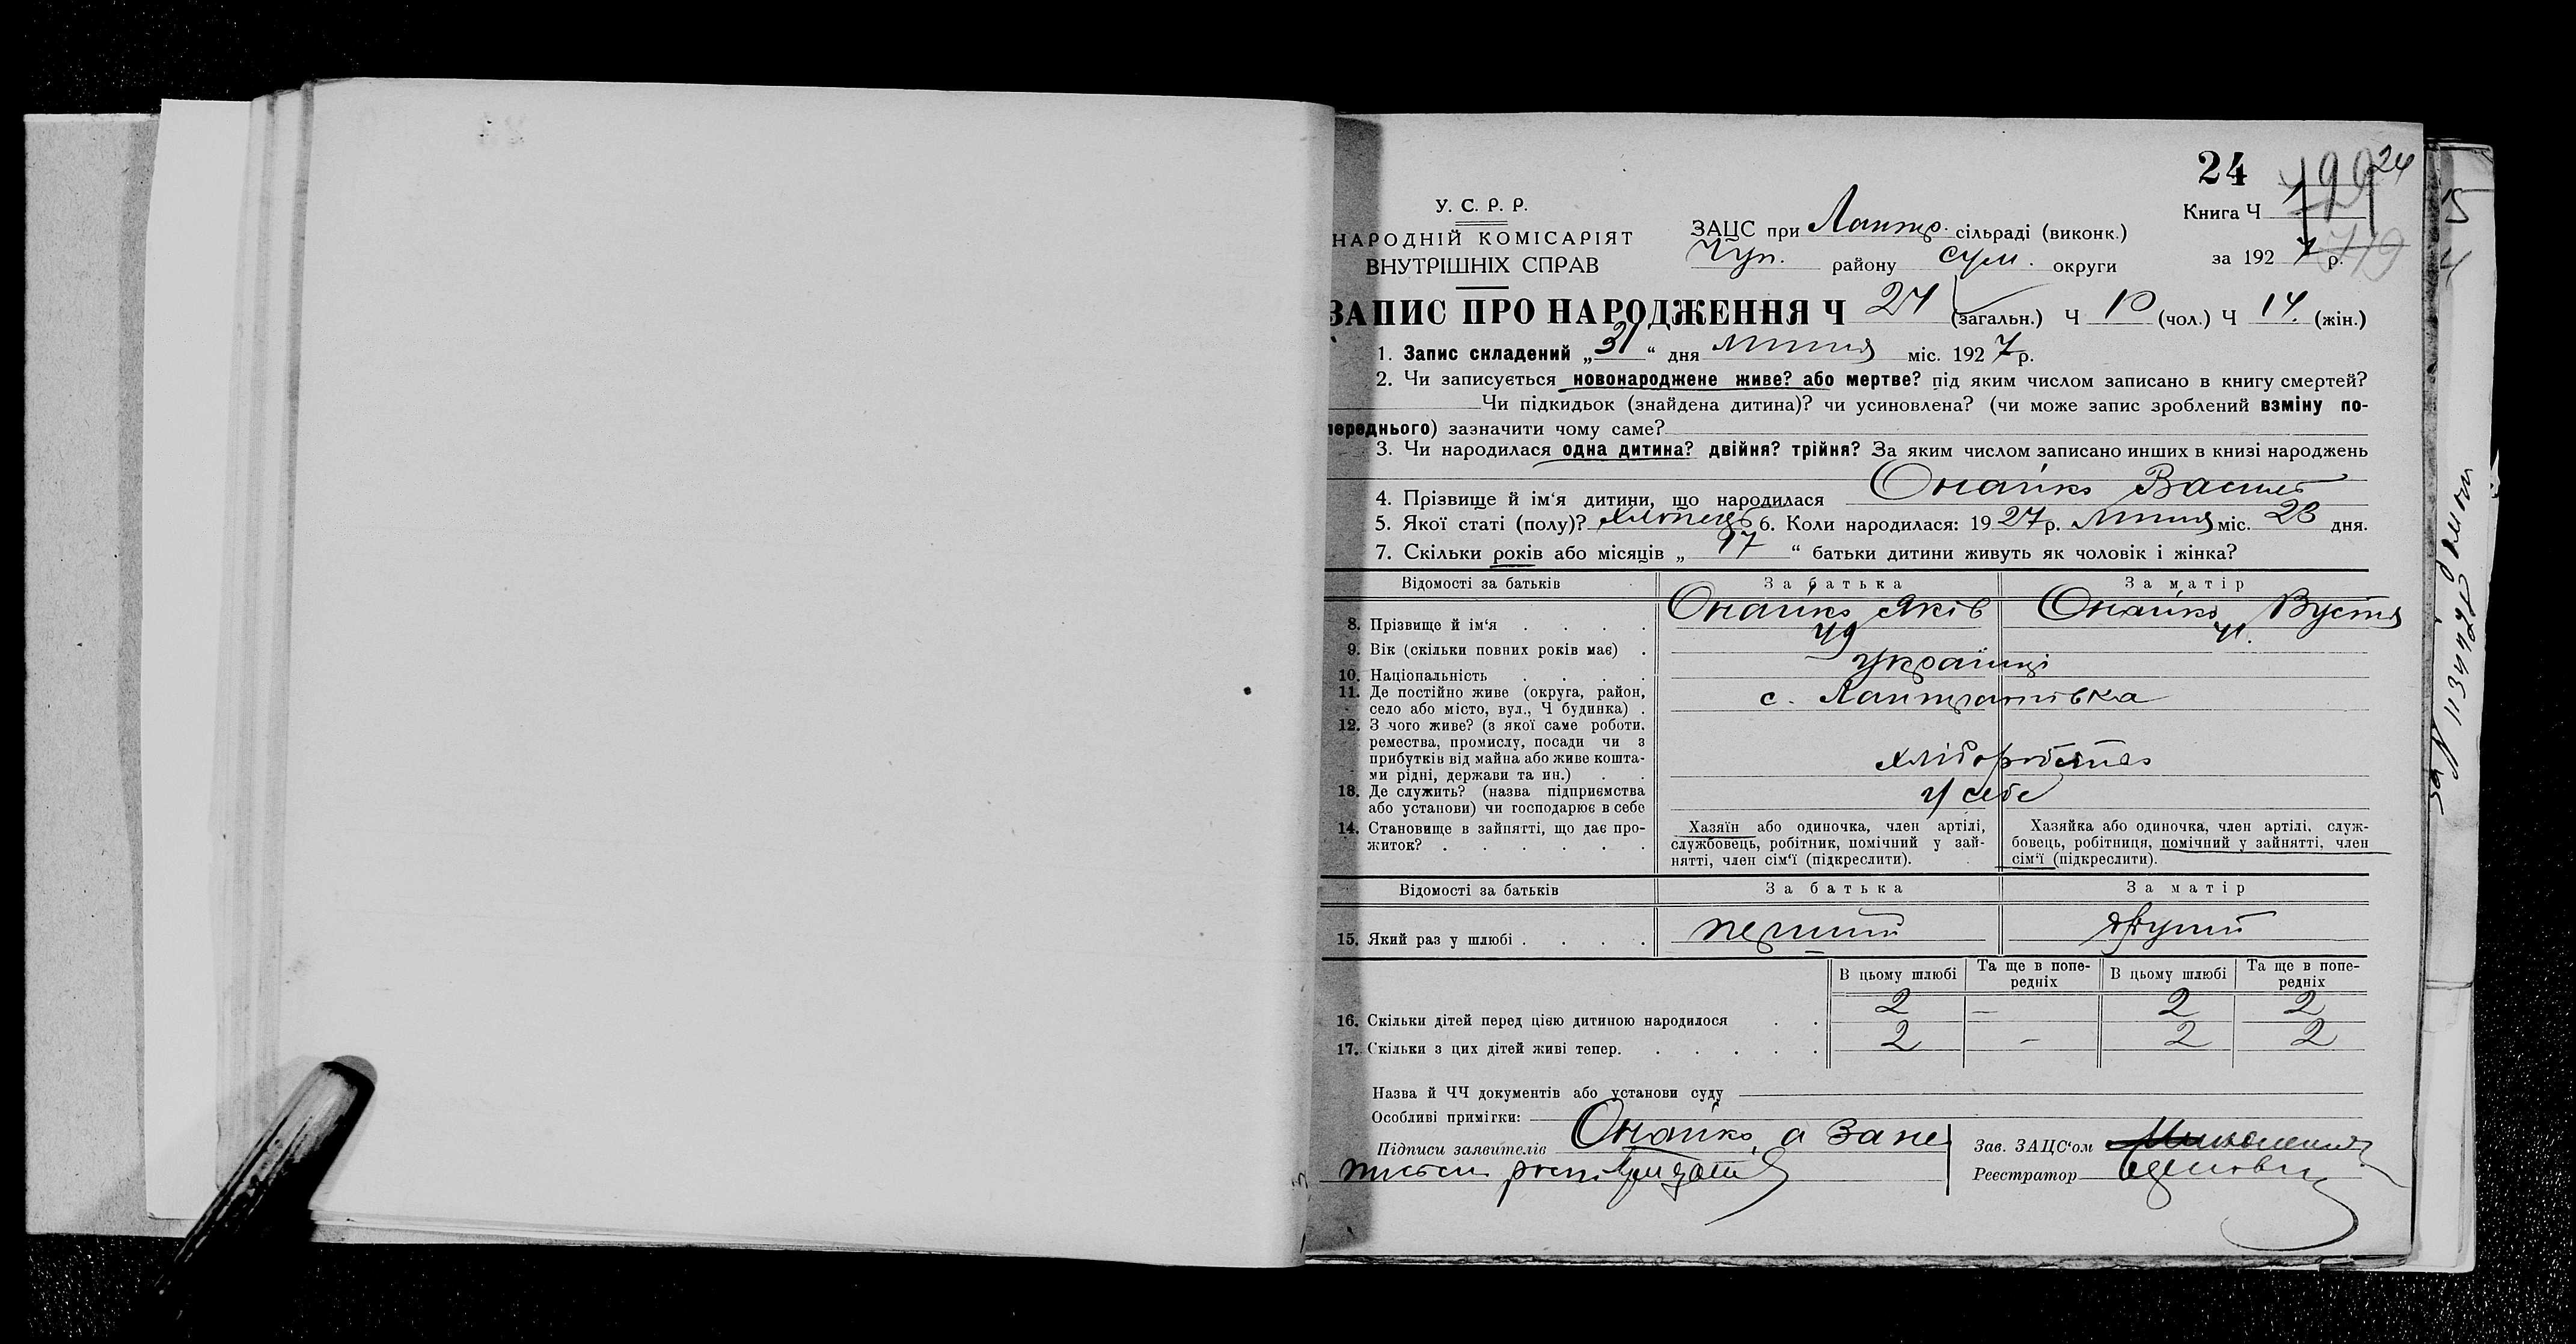 24
24
У. С. Р. Р.
НАРОДНІЙ КОМІСАРІЯТ
ВНУТРІШНІХ СПРАВ
ЗАЦС при сільраді (виконк.)
Чуп. району Сум. округи
Книга Ч 1
за 1927 р.
719
ЗАПИС ПРО НАРОДЖЕННЯ Ч 24 (загальн.) Ч 10 (чол.) Ч 14. (жін.)
1. Запис складений „31“ дня липня міс. 1927 р.
2. Чи записується новонароджене живе? або мертве? під яким числом записано в книгу смертей?
Чи підкидьок (знайдена дитина)? чи усиновлена? (чи може запис зроблений взміну по-
переднього) зазначити чому саме?
3. Чи народилася одна дитина? двійня? трійня? За яким числом записано инших в книзі народжень
4. Прізвище й ім'я дитини, що народилася Онайко Василь
5. Якої статі (полу)? хлопець 6. Коли народилася: 1927 р. липня міс. 23 дня.
7. Скільки років або місяців „17“ батьки дитини живуть як чоловік і жінка?
Відомості за батьків За батька За матір
8. Прізвище й ім'я . . . . Онайко Яків Онайко Вустя
9. Вік (скільки повних років має) . 49 41.
10. Національність . . . . українці
11. Де постійно живе (округа, район,
село або місто, вул., Ч будинка) . с.
12. З чого живе? (з якої саме роботи,
ремества, промислу, посади чи з
прибутків від майна або живе кошта-
ми рідні, держави та ин.) . . хліборобство
13. Де служить? (назва підприємства
або установи) чи господарює в себе у себе
14. Становище в зайнятті, що дає про-
житок? . . . . . .
Хазяїн або одиночка, член артілі,
службовець, робітник, помічний у зай-
нятті, член сім'ї (підкреслити).
Хазяйка або одиночка, член артілі, служ-
бовець, робітниця, помічний у зайнятті, член
сім'ї (підкреслити).
Відомості за батьків За батька За матір
15. Який раз у шлюбі . . . . перший другий
В цьому шлюбі Та ще в попе-
редніх В цьому шлюбі Та ще в попе-
редніх
16. Скільки дітей перед цією дитиною народилося . . 2 – 2 2
17. Скільки з цих дітей живі тепер. . . . . . 2 - 2 2
Назва й ЧЧ документів або установи суду
Особливі примітки:
Підписи заявителів Онайко, а за не
Зав. ЗАЦС'ом
Реєстратор